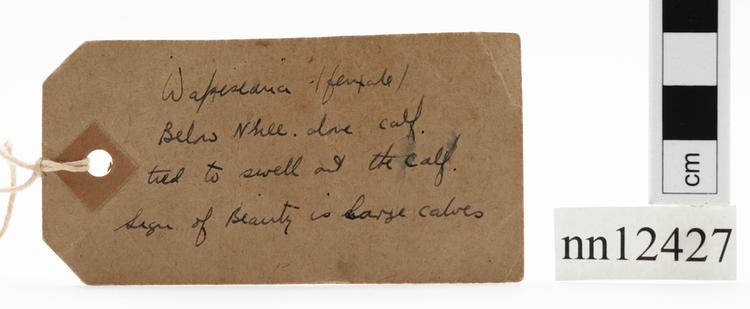 Wapisiana (female)
Below Knee. above calf.
tied to swell out the calf.
Sign of Beauty is Large calves
cm
nn12427